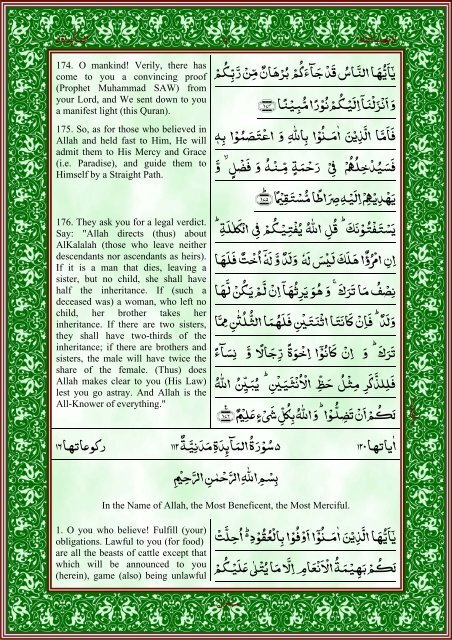 174. O mankind! Verily, there has
come to you a convincing proof
(Prophet Muhammad SAW) from
your Lord, and We sent down to you
a manifest light (this Quran).
175. So, as for those who believed in
Allah and held fast to Him, He will
admit them to His Mercy and Grace
(i.e. Paradise), and guide them to
Himself by a Straight Path.
176. They ask you for a legal verdict.
Say: "Allah directs (thus) about
AlKalalah (those who leave neither
descendants nor ascendants as heirs).
If it is a man that dies, leaving a
sister, but no child, she shall have
half the inheritance. If (such a
deceased was) a woman, who left no
child, her brother takes her
inheritance. If there are two sisters,
they shall have two-thirds of the
inheritance; if there are brothers and
sisters, the male will have twice the
share of the female. (Thus) does
Allah makes clear to you (His Law)
lest you go astray. And Allah is the
All-Knower of everything."
يٰۤاَيُّهَا النَّاسُ قَدْ جَآءَكُمْ بُرْهَانٌ مِّنْ رَّبِّكُمْ
وَاَنْزَلْنَاۤ اِلَيْكُمْ نُوْرًا مُّبِيْنًا
فَاَمَّا الَّذِيْنَ اٰمَنُوْا بِاللّٰهِ وَ اعْتَصَمُوْا بِهٖ
فَسَيُدْخِلُهُمْ فِيْ رَحْمَةٍ مِّنْهُ وَ فَضْلٍ ۙ وَّ
يَهْدِيْهِمْ اِلَيْهِ صِرَاطًا مُّسْتَقِيْمًا
يَسْتَفْتُوْنَكَ ؕ قُلِ اللّٰهُ يُفْتِيْكُمْ فِي الْكَلٰلَةِ ؕ
اِنِ امْرُؤٌا هَلَكَ لَيْسَ لَهٗ وَلَدٌ وَّ لَهٗۤ اُخْتٌ فَلَهَا
نِصْفُ مَا تَرَكَ ۚ وَ هُوَ يَرِثُهَاۤ اِنْ لَّمْ يَكُنْ لَّهَا
وَلَدٌ ؕ فَاِنْ كَانَتَا اثْنَتَيْنِ فَلَهُمَا الثُّلُثٰنِ مِمَّا
تَرَكَ ؕ وَ اِنْ كَانُوْۤا اِخْوَةً رِّجَالًا وَّ نِسَآءً
فَلِلذَّكَرِ مِثْلُ حَظِّ الْاُنْثَيَيْنِ ؕ يُبَيِّنُ اللّٰهُ
لَكُمْ اَنْ تَضِلُّوْا ؕ وَ اللّٰهُ بِكُلِّ شَيْءٍ عَلِيْمٌ
اٰياتها ١٢٠ ٥ سُوْرَةُ الْمَآئِدَةِ مَدَنِيَّةٌ ١١٢ ركوعاتها ١٦
بِسْمِ اللّٰهِ الرَّحْمٰنِ الرَّحِيْمِ
In the Name of Allah, the Most Beneficent, the Most Merciful.
1. O you who believe! Fulfill (your)
obligations. Lawful to you (for food)
are all the beasts of cattle except that
which will be announced to you
(herein), game (also) being unlawful
يٰۤاَيُّهَا الَّذِيْنَ اٰمَنُوْۤا اَوْفُوْا بِالْعُقُوْدِ ؕ اُحِلَّتْ
لَكُمْ بَهِيْمَةُ الْاَنْعَامِ اِلَّا مَا يُتْلٰى عَلَيْكُمْ